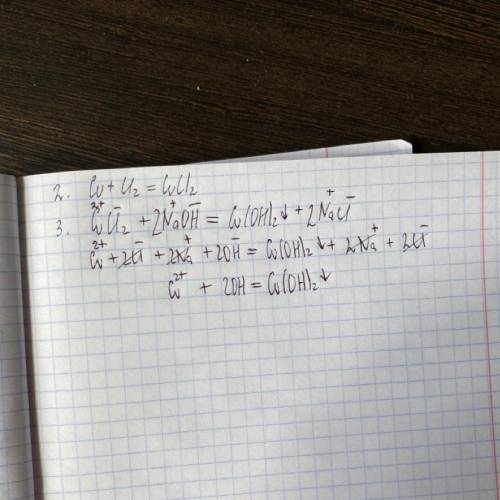 2. Cu + Cl₂ = CuCl₂
3. Cu²⁺Cl⁻₂ + 2Na⁺OH⁻ = Cu(OH)₂↓ + 2Na⁺Cl⁻
Cu²⁺ + 2Cl⁻ + 2Na⁺ + 2OH⁻ = Cu(OH)₂↓ + 2Na⁺ + 2Cl⁻
Cu²⁺ + 2OH = Cu(OH)₂↓